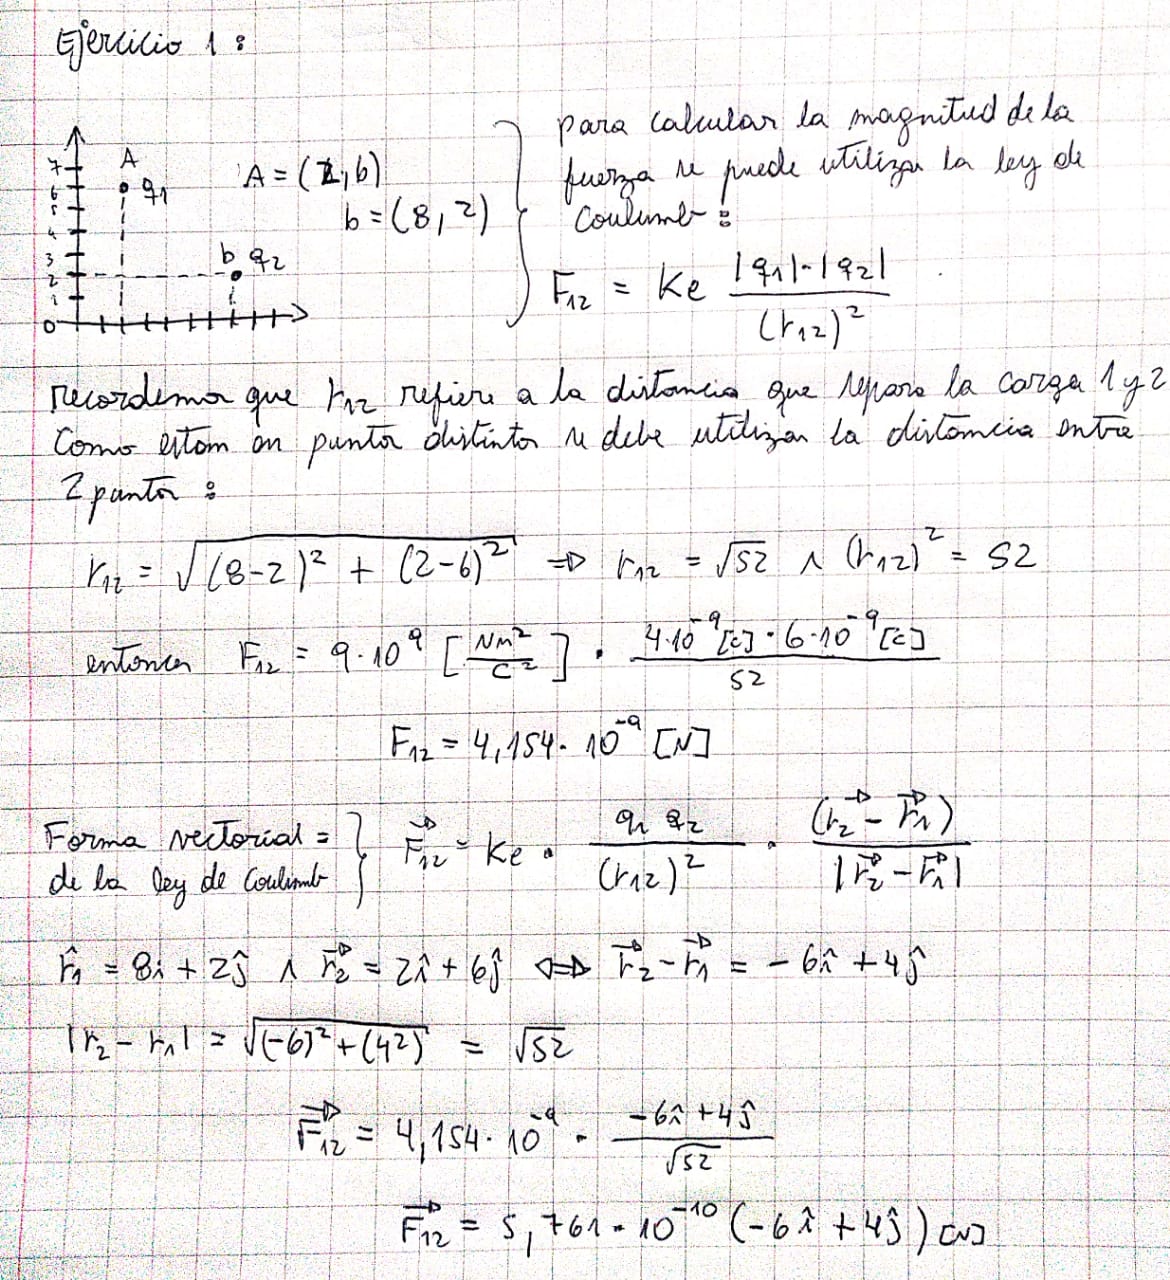 Ejercicio 1:
7 A
6 q₁
5
4
3 b q₂
2
1
0
A = (2, 6)
b = (8, 2)
para calcular la magnitud de la
fuerza se puede utilizar la ley de
Coulumb:
F₁₂ = Ke |q₁|·|q₂| / (r₁₂)²
recordemos que r₁₂ refiere a la distancia que separa la carga 1 y 2
Como estam en puntos distintos se debe utilizar la distancia entre
2 puntos:
r₁₂ = √((8-2)² + (2-6)²) ⇒ r₁₂ = √52 ∧ (r₁₂)² = 52
entonces F₁₂ = 9·10⁹ [Nm²/C²] · 4·10⁻⁹[C]·6·10⁻⁹[C] / 52
F₁₂ = 4,154·10⁻⁹ [N]
Forma vectorial =
de la ley de Coulumb
F⃗₁₂ = Ke · q₁ q₂ / (r₁₂)² · (r⃗₂ - r⃗₁) / |r⃗₂ - r⃗₁|
r̂₁ = 8î + 2ĵ ∧ r⃗₂ = 2î + 6ĵ ⇔ r⃗₂ - r⃗₁ = -6î + 4ĵ
|r₂ - r₁| = √((-6)² + (4²)) = √52
F⃗₁₂ = 4,154·10⁻⁹ · (-6î + 4ĵ) / √52
F⃗₁₂ = 5,761·10⁻¹⁰ (-6î + 4ĵ) [N]